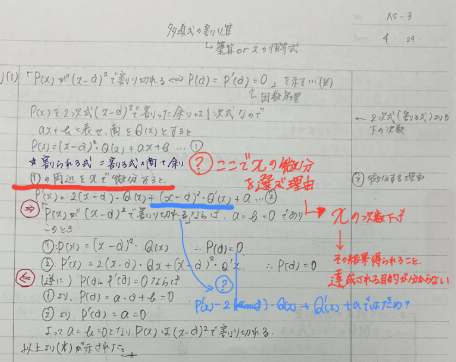 多項式の割り算
↳筆算 or xの恒等式
No. AS-3
Date 4 . 24
(1) 「P(x)が(x-α)²で割り切れる⇔P(α)=P'(α)=0」を示す…(*)
P(x)を2次式(x-α)²で割った余りは1次式なので
ax+bと表せ、商をQ(x)とすると
P(x)=(x-α)²・Q(x)+ax+b …①
☆割られる式=割る式×商+余り
①の両辺をxで微分すると、
P'(x)=2(x-α)・Q(x)+(x-α)²・Q'(x)+a …②
⇒ P(x)が(x-α)²で割り切れるならば、a=b=0であり
このとき
①:P(x)=(x-α)²・Q(x) ∴P(α)=0
②:P'(x)=2(x-α)・Q(x)+(x-α)²・Q'(x) ∴P'(α)=0
⇐ 逆に、P(α)=P'(α)=0ならば
①より、P(α)=a・α+b=0
②より、P'(α)=a=0
よって a=b=0となり、P(x)は(x-α)²で割り切れる。
以上より(*)が示された。
? ここでxの微分を選ぶ理由
→xの次数下げ
その結果得られること、
達成される目的が分からない
?
←2次式(割る式)より
下の次数
? 微分する理由